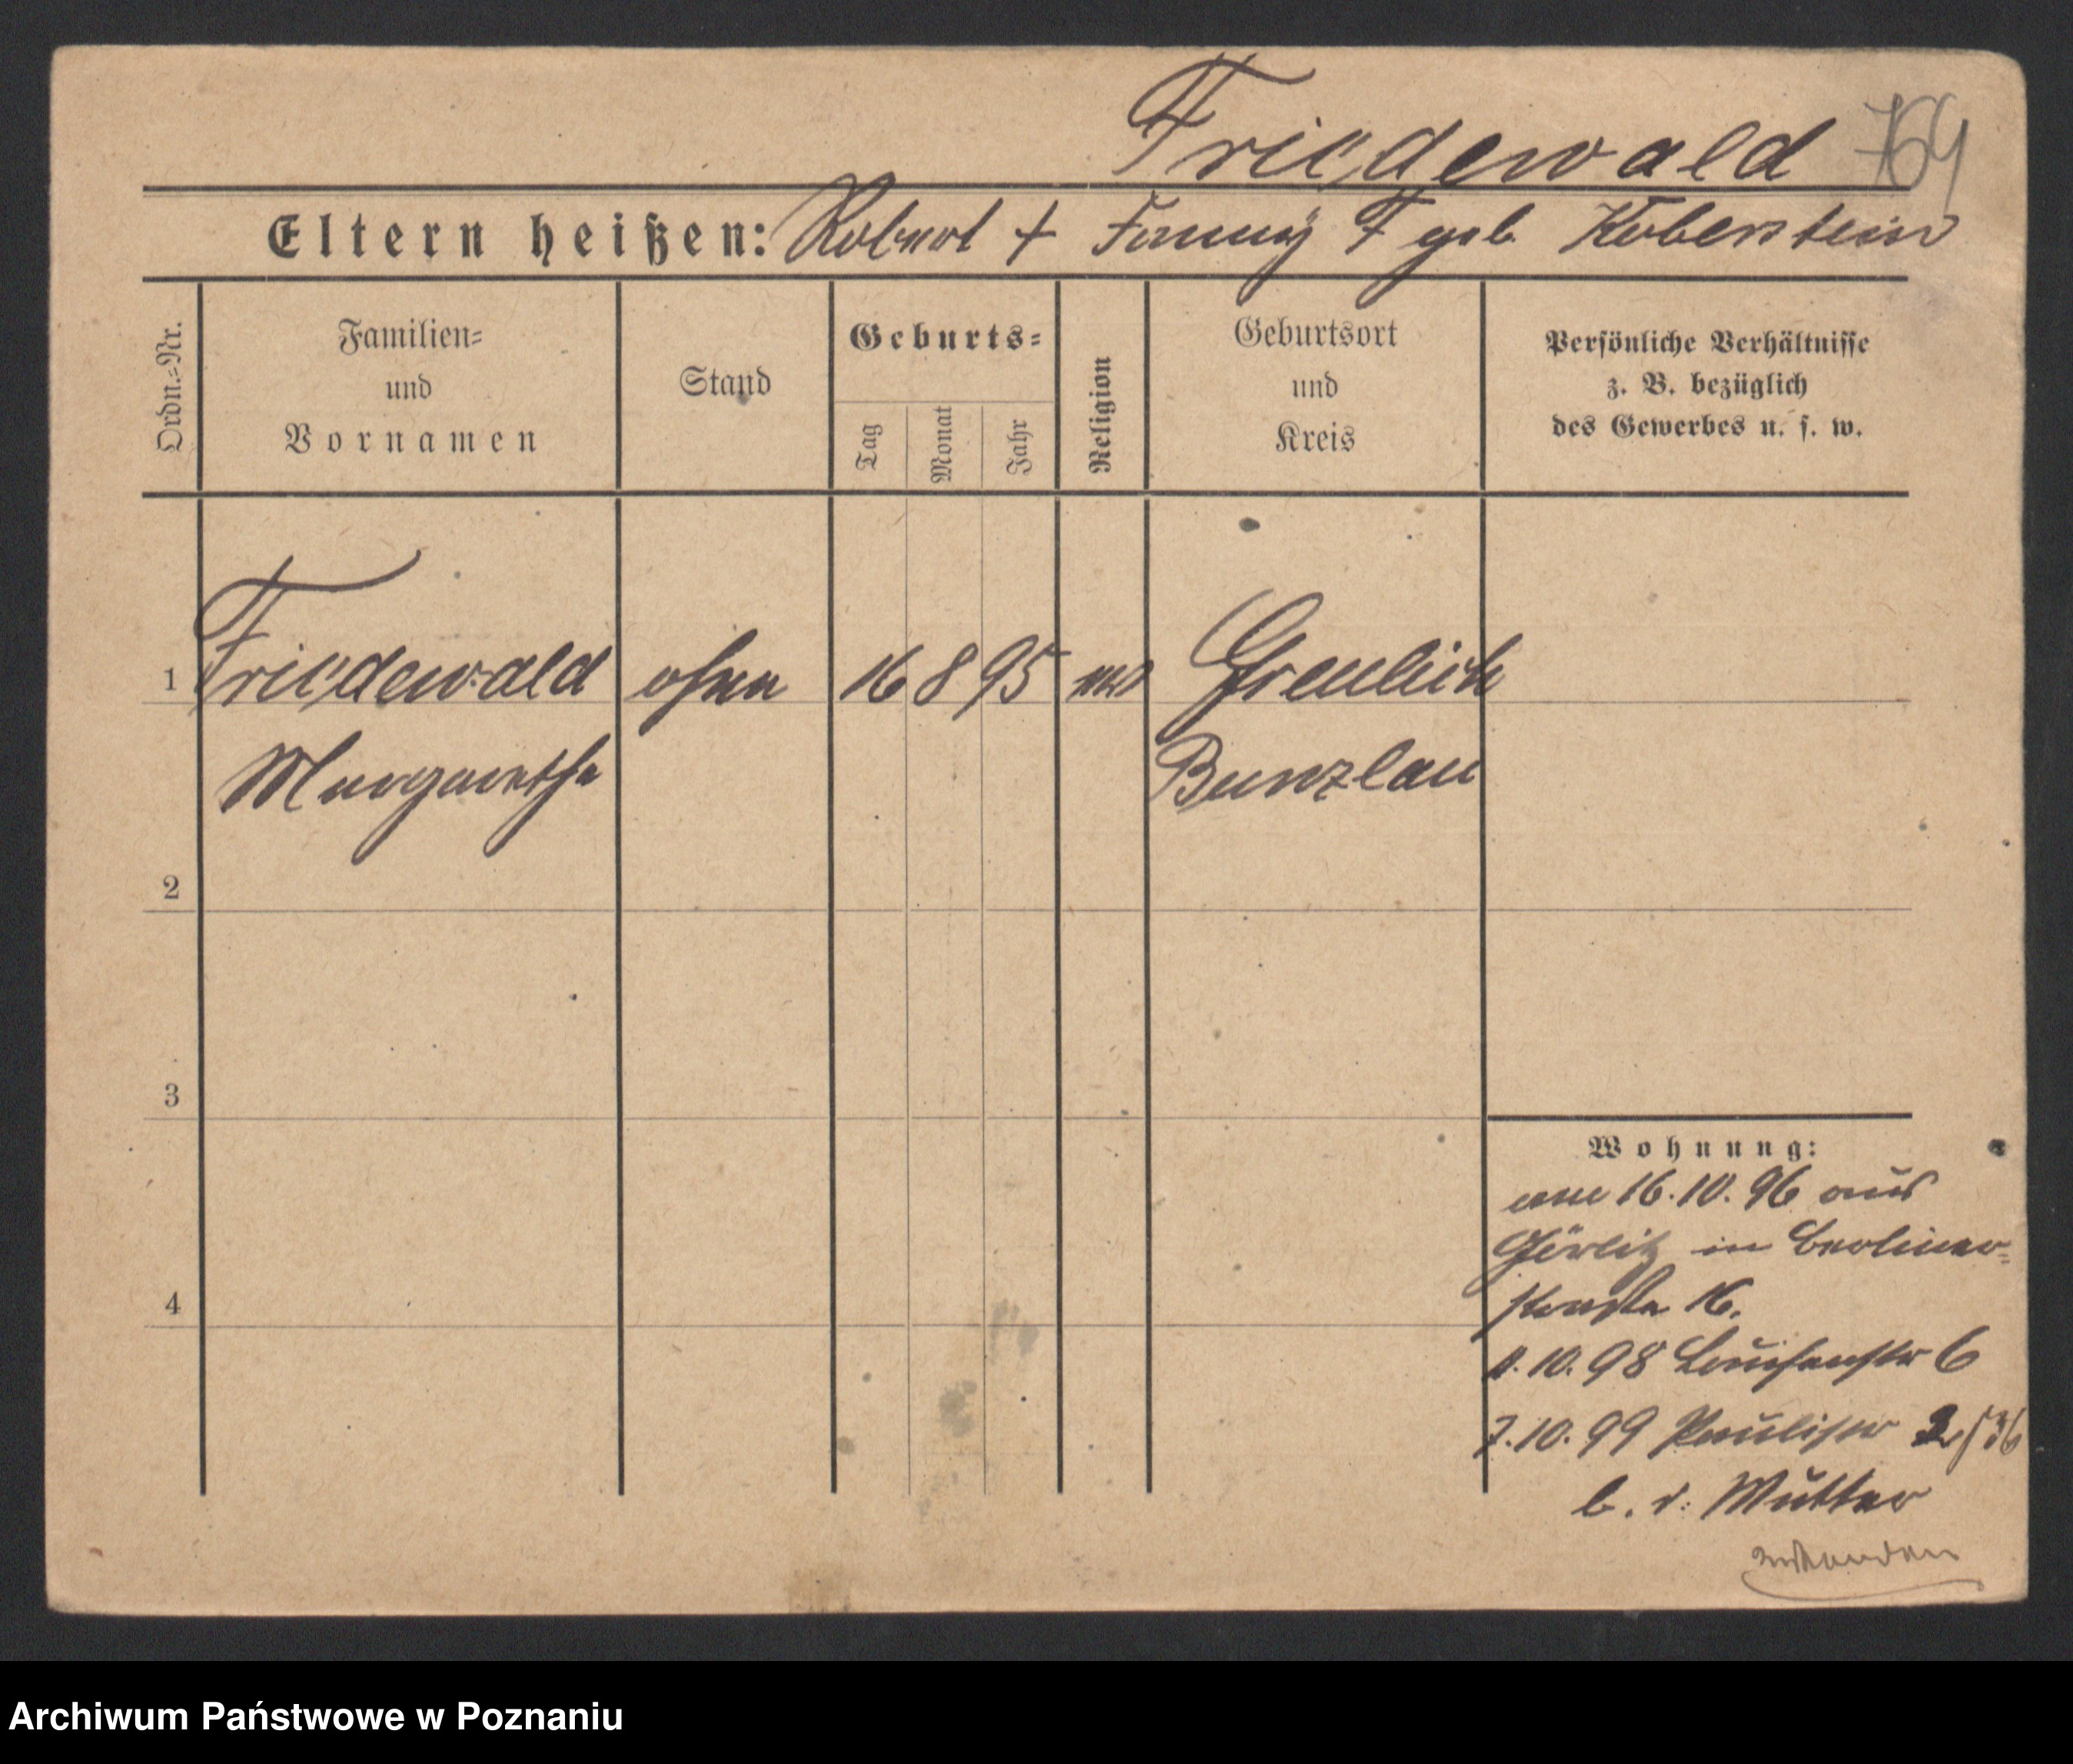 Friedewald 769
Eltern heißen: Robert + Fanny F geb. Koberstein
Ordn.-Nr.
Familien-
und
Vornamen
Stand
Geburts-
Tag
Monat
Jahr
Religion
Geburtsort
und
Kreis
Persönliche Verhältnisse
z. B. bezüglich
des Gewerbes u. s. w.
1 Friedewald ohne 16 8 95 Greulich
Margarethe Bunzlau
2
3
4
Wohnung:
16.10.96 aus
Görlitz in Berliner-
straße 16.
1.10.98 Louisenstr 6
7.10.99 Paulistr
b. d. Mutter
Archiwum Państwowe w Poznaniu